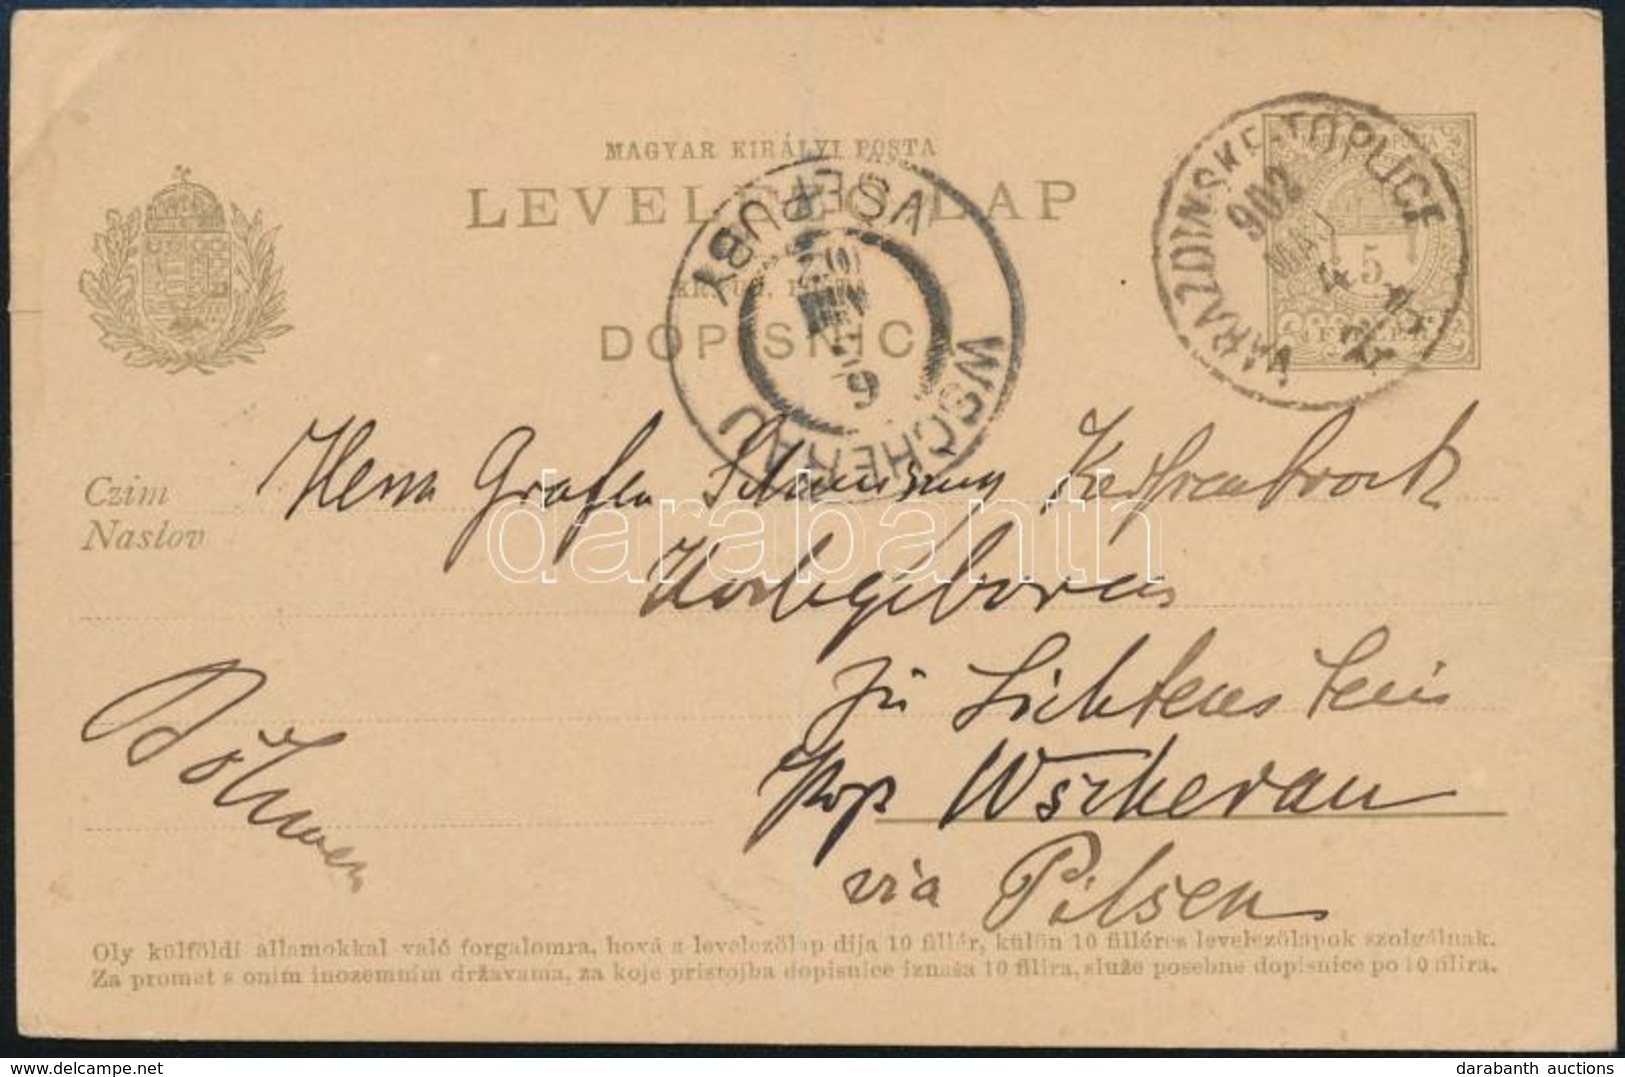 MAGYAR KIRÁLYI POSTA
LEVELEZŐLAP
DOPISNICA
VARAZDINSKE-TOPLICE
902
MAJ
5
FILLÉR
VŠERUBY
WSCHERAU
6
Czim
Naslov
Herrn Grafen Kerssenbrock
Hochgeboren
zu Lichtenstein
Post Wscherau
via Pilsen
Böhmen
Oly külföldi államokkal való forgalomra, hová a levelezőlap dija 10 fillér, külön 10 filléres levelezőlapok szolgálnak.
Za promet s onim inozemnim državama, za koje pristojba dopisnice iznaša 10 filira, služe posebne dopisnice po 10 filira.
darabanth
darabanth auctions
www.delcampe.net